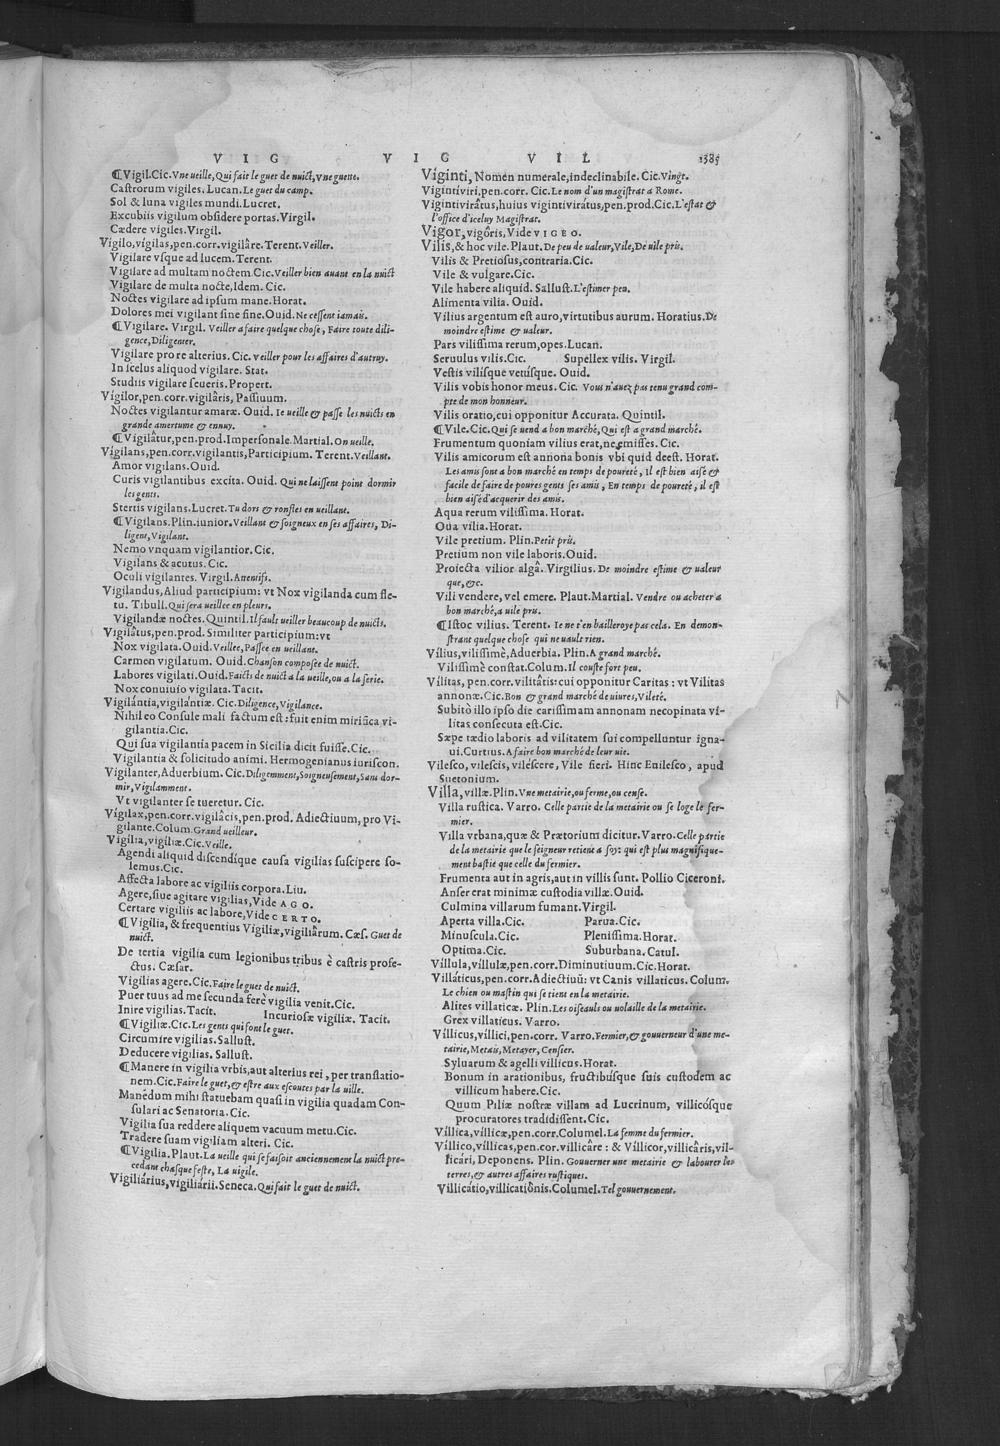 V I G V I G V I L 1385
¶Vigil.Cic.Vne ueille,Qui fait le guet de nuict,vne guette.
Castrorum vigiles.Lucan.Le guet du camp.
Sol & luna vigiles mundi.Lucret.
Excubiis vigilum obsidere portas.Virgil.
Cædere vigiles.Virgil.
Vigilo,vígilas,pen.corr.vigiláre.Terent.Veiller.
Vigilare vsque ad lucem.Terent.
Vigilare ad multam noctem.Cic.Veiller bien auant en la nuict
Vigilare de multa nocte,Idem.Cic.
Noctes vigilare ad ipsum mane.Horat.
Dolores mei vigilant sine fine.Ouid.Ne cessent iamais.
¶Vigilare. Virgil. Veiller a faire quelque chose, Faire toute dili-
gence,Diligenter.
Vigilare pro re alterius. Cic. Veiller pour les affaires d'autruy.
In scelus aliquod vigilare. Stat.
Studiis vigilare seueris.Propert.
Vígilor,pen.corr.vigiláris, Passiuum.
Noctes vigilantur amaræ. Ouid. Ie ueille & passe les nuicts en
grande amertume & ennuy.
¶Vigilâtur,pen.prod.Impersonale.Martial.On ueille.
Vígilans,pen.corr.vigilantis,Participium. Terent.Veillant.
Amor vigilans.Ouid.
Curis vigilantibus excita. Ouid. Qui ne laissent point dormir
les gents.
Stertis vigilans.Lucret.Tu dors & ronfles en ueillant.
¶Vigilans.Plin.iunior.Veillant & soigneux en ses affaires, Di-
ligent,Vigilant.
Nemo vnquam vigilantior.Cic.
Vigilans & acutus.Cic.
Oculi vigilantes. Virgil.Attentifs.
Vigilandus,Aliud participium: vt Nox vigilanda cum fle-
tu. Tibull.Qui sera ueillee en pleurs.
Vigilandæ noctes. Quintil.Il fault ueiller beaucoup de nuicts.
Vigilâtus,pen.prod. Similiter participium:vt
Nox vigilata.Ouid.Veillee,Passee en ueillant.
Carmen vigilatum. Ouid.Chanson composee de nuict.
Labores vigilati.Ouid.Faicts de nuict a la ueille,ou a la serie.
Nox conuiuio vigilata.Tacit.
Vigilántia,vigilántiæ. Cic.Diligence,Vigilance.
Nihil eo Consule mali factum est:fuit enim mirifica vi-
gilantia.Cic.
Qui sua vigilantia pacem in Sicilia dicit fuisse.Cic.
Vigilantia & solicitudo animi. Hermogenianus iuriscon.
Vigilanter,Aduerbium. Cic.Diligemment,Soigneusement,Sans dor-
mir,Vigilamment.
Vt vigilanter se tueretur. Cic.
Vígilax,pen.corr.vigilâcis,pen.prod. Adiectiuum,pro Vi-
gilante.Colum.Grand ueilleur.
Vigília,vigíliæ.Cic.Veille.
Agendi aliquid discendíque causa vigilias suscipere so-
lemus.Cic.
Affecta labore ac vigiliis corpora.Liu.
Agere,siue agitare vigilias,Vide A G O.
Certare vigiliis ac labore,Vide C E R T O.
¶Vigília, & frequentius Vigíliæ,vigiliârum. Cæs. Guet de
nuict.
De tertia vigilia cum legionibus tribus è castris profe-
ctus. Cæsar.
Vigilias agere.Cic.Faire le guet de nuict.
Puer tuus ad me secunda ferè vigilia venit.Cic.
Inire vigilias.Tacit. Incuriosæ vigiliæ. Tacit.
¶Vigiliæ.Cic.Les gents qui sont le guet.
Circumire vigilias.Sallust.
Deducere vigilias. Sallust.
¶Manere in vigilia vrbis,aut alterius rei, per translatio-
nem.Cic.Faire le guet,& estre aux escoutes par la uille.
Manendum mihi statuebam quasi in vigilia quadam Con-
sulari ac Senatoria.Cic.
Vigilia sua reddere aliquem vacuum metu.Cic.
Tradere suam vigiliam alteri. Cic.
¶Vigilia.Plaut.La ueille qui se faisoit anciennement la nuict pre-
cedant chasque feste, La uigile.
Vigiliárius,vigiliárii.Seneca.Qui fait le guet de nuict.
Viginti, Nomen numerale,indeclinabile. Cic.Vingt.
Vigintíviri,pen.corr. Cic.Le nom d'un magistrat a Rome.
Vigintivirâtus,huius vigintivirátus,pen.prod.Cic.L'estat &
l'office d'iceluy Magistrat.
Vigor,vigôris,Vide V I G E O.
Vilis,& hoc vile. Plaut.De peu de ualeur,Vile,De uile pris.
Vilis & Pretiosus,contraria.Cic.
Vile & vulgare.Cic.
Vile habere aliquid. Sallust.L'estimer peu.
Alimenta vilia. Ouid.
Vilius argentum est auro,virtutibus aurum. Horatius.De
moindre estime & ualeur.
Pars vilissima rerum,opes.Lucan.
Seruulus vilis.Cic. Supellex vilis. Virgil.
Vestis vilísque vetúsque. Ouid.
Vilis vobis honor meus. Cic. Vous n'auez pas tenu grand com-
pte de mon honneur.
Vilis oratio,cui opponitur Accurata. Quintil.
¶Vile.Cic.Qui se uend a bon marché,Qui est a grand marché.
Frumentum quoniam vilius erat,ne emisses. Cic.
Vilis amicorum est annona bonis vbi quid deest. Horat.
Les amis sont a bon marché en temps de poureté, il est bien aisé &
facile de faire de poures gents ses amis, En temps de poureté, il est
bien aisé d'acquerir des amis.
Aqua rerum vilissima. Horat.
Oua vilia.Horat.
Vile pretium. Plin.Petit pris.
Pretium non vile laboris.Ouid.
Proiecta vilior algâ. Virgilius. De moindre estime & ualeur
que,&c.
Vili vendere, vel emere. Plaut.Martial. Vendre ou acheter a
bon marché,a uile pris.
¶Istoc vilius. Terent. Ie ne t'en bailleroye pas cela. En demon-
strant quelque chose qui ne uault rien.
Vílius,vilissimè,Aduerbia. Plin.A grand marché.
Vilissimè constat.Colum.Il couste fort peu.
Vílitas, pen.corr.vilitátis:cui opponitur Caritas : vt Vilitas
annonæ.Cic.Bon & grand marché de uiures,Vileté.
Subitò illo ipso die carissimam annonam necopinata vi-
litas consecuta est.Cic.
Sæpe tædio laboris ad vilitatem sui compelluntur igna-
ui.Curtius.A faire bon marché de leur uie.
Vilesco, vilescis, viléscere, Vile fieri. Hinc Euilesco, apud
Suetonium.
Villa,villæ.Plin.Vne metairie,ou ferme,ou cense.
Villa rustica. Varro. Celle partie de la metairie ou se loge le fer-
mier.
Villa vrbana,quæ & Prætorium dicitur. Varro.Celle partie
de la metairie que le seigneur retient a soy: qui est plus magnifique-
ment bastie que celle du fermier.
Frumenta aut in agris,aut in villis sunt. Pollio Ciceroni.
Anser erat minimæ custodia villæ.Ouid.
Culmina villarum fumant.Virgil.
Aperta villa.Cic. Parua.Cic.
Minuscula.Cic. Plenissima.Horat.
Optima.Cic. Suburbana.Catul.
Víllula,víllulæ,pen.corr.Diminutiuum.Cic.Horat.
Villáticus,pen.corr.Adiectiuū: vt Canis villaticus. Colum.
Le chien ou mastin qui se tient en la metairie.
Alites villaticæ. Plin.Les oiseauls ou uolaille de la metairie.
Grex villaticus. Varro.
Víllicus,víllici,pen.corr. Varro.Fermier,& gouuerneur d'une me-
tairie,Metais,Metayer,Censier.
Syluarum & agelli villicus.Horat.
Bonum in arationibus, fructibúsque suis custodem ac
villicum habere.Cic.
Quum Piliæ nostræ villam ad Lucrinum, villicósque
procuratores tradidissent.Cic.
Víllica,víllicæ,pen.corr.Columel.La femme du fermier.
Víllico,víllicas,pen.cor.villicâre : & Víllicor,villicâris,vil-
licári, Deponens. Plin. Gouuerner une metairie & labourer les
terres,& autres affaires rustiques.
Villicátio,villicatiônis.Columel.Tel gouuernement.